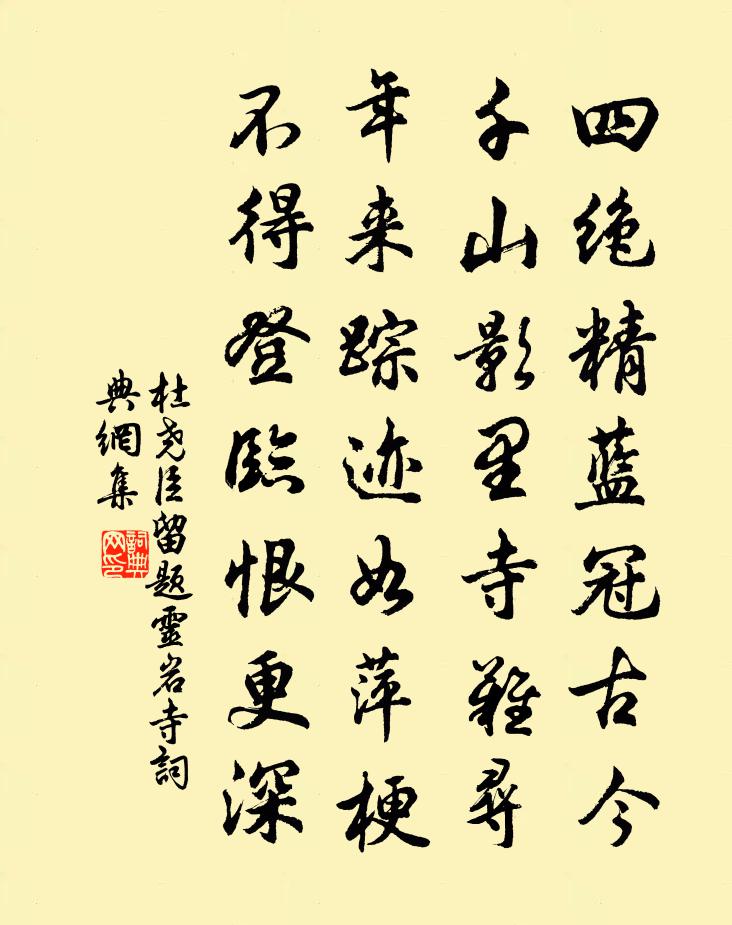 四绝精蓝冠古今
千山影里寺难寻
年来踪迹如萍梗
不得登临恨更深
杜尧臣留题靈岩寺詞
典網集
詞典
网印